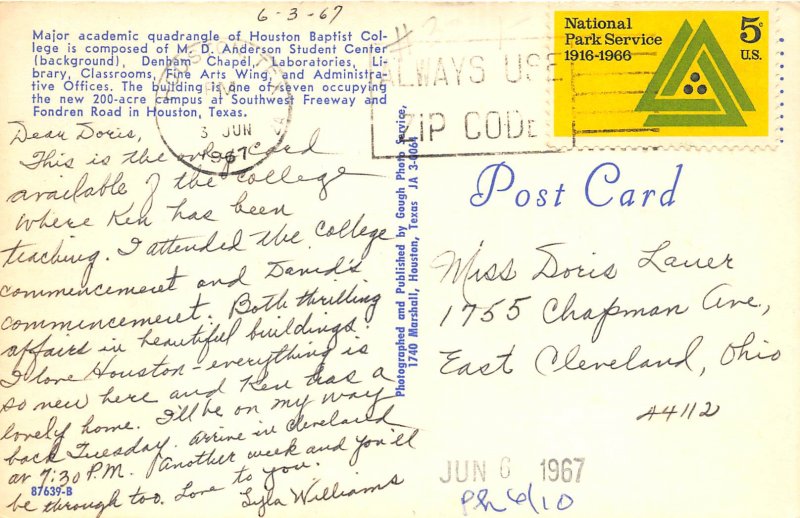 6-3-67
Major academic quadrangle of Houston Baptist Col-
lege is composed of M. D. Anderson Student Center
(background), Denham Chapel, Laboratories, Li-
brary, Classrooms, Fine Arts Wing, and Administra-
tive Offices. The building is one of seven occupying
the new 200-acre campus at Southwest Freeway and
Fondren Road in Houston, Texas.
Dear Doris,
This is the only card
available of the college
where Ken has been
teaching. I attended the college
commencement and David's
commencement. Both thrilling
affairs in beautiful buildings.
I love Houston - everything is
so new here and Ken has a
lovely home. I'll be on my way
back Tuesday. Arrive in Cleveland
at 7:30 P.M. Another week and you'll
be through too. Love to you.
Lyla Williams
87639-B
Photographed and Published by Gough Photo Service,
1740 Marshall, Houston, Texas JA 3-0064
PM
3 JUN
1967
ALWAYS USE
ZIP CODE
National
Park Service
1916-1966
5c
U.S.
Post Card
Miss Doris Lauer
1755 Chapman Ave,
East Cleveland, Ohio
44112
JUN 6 1967